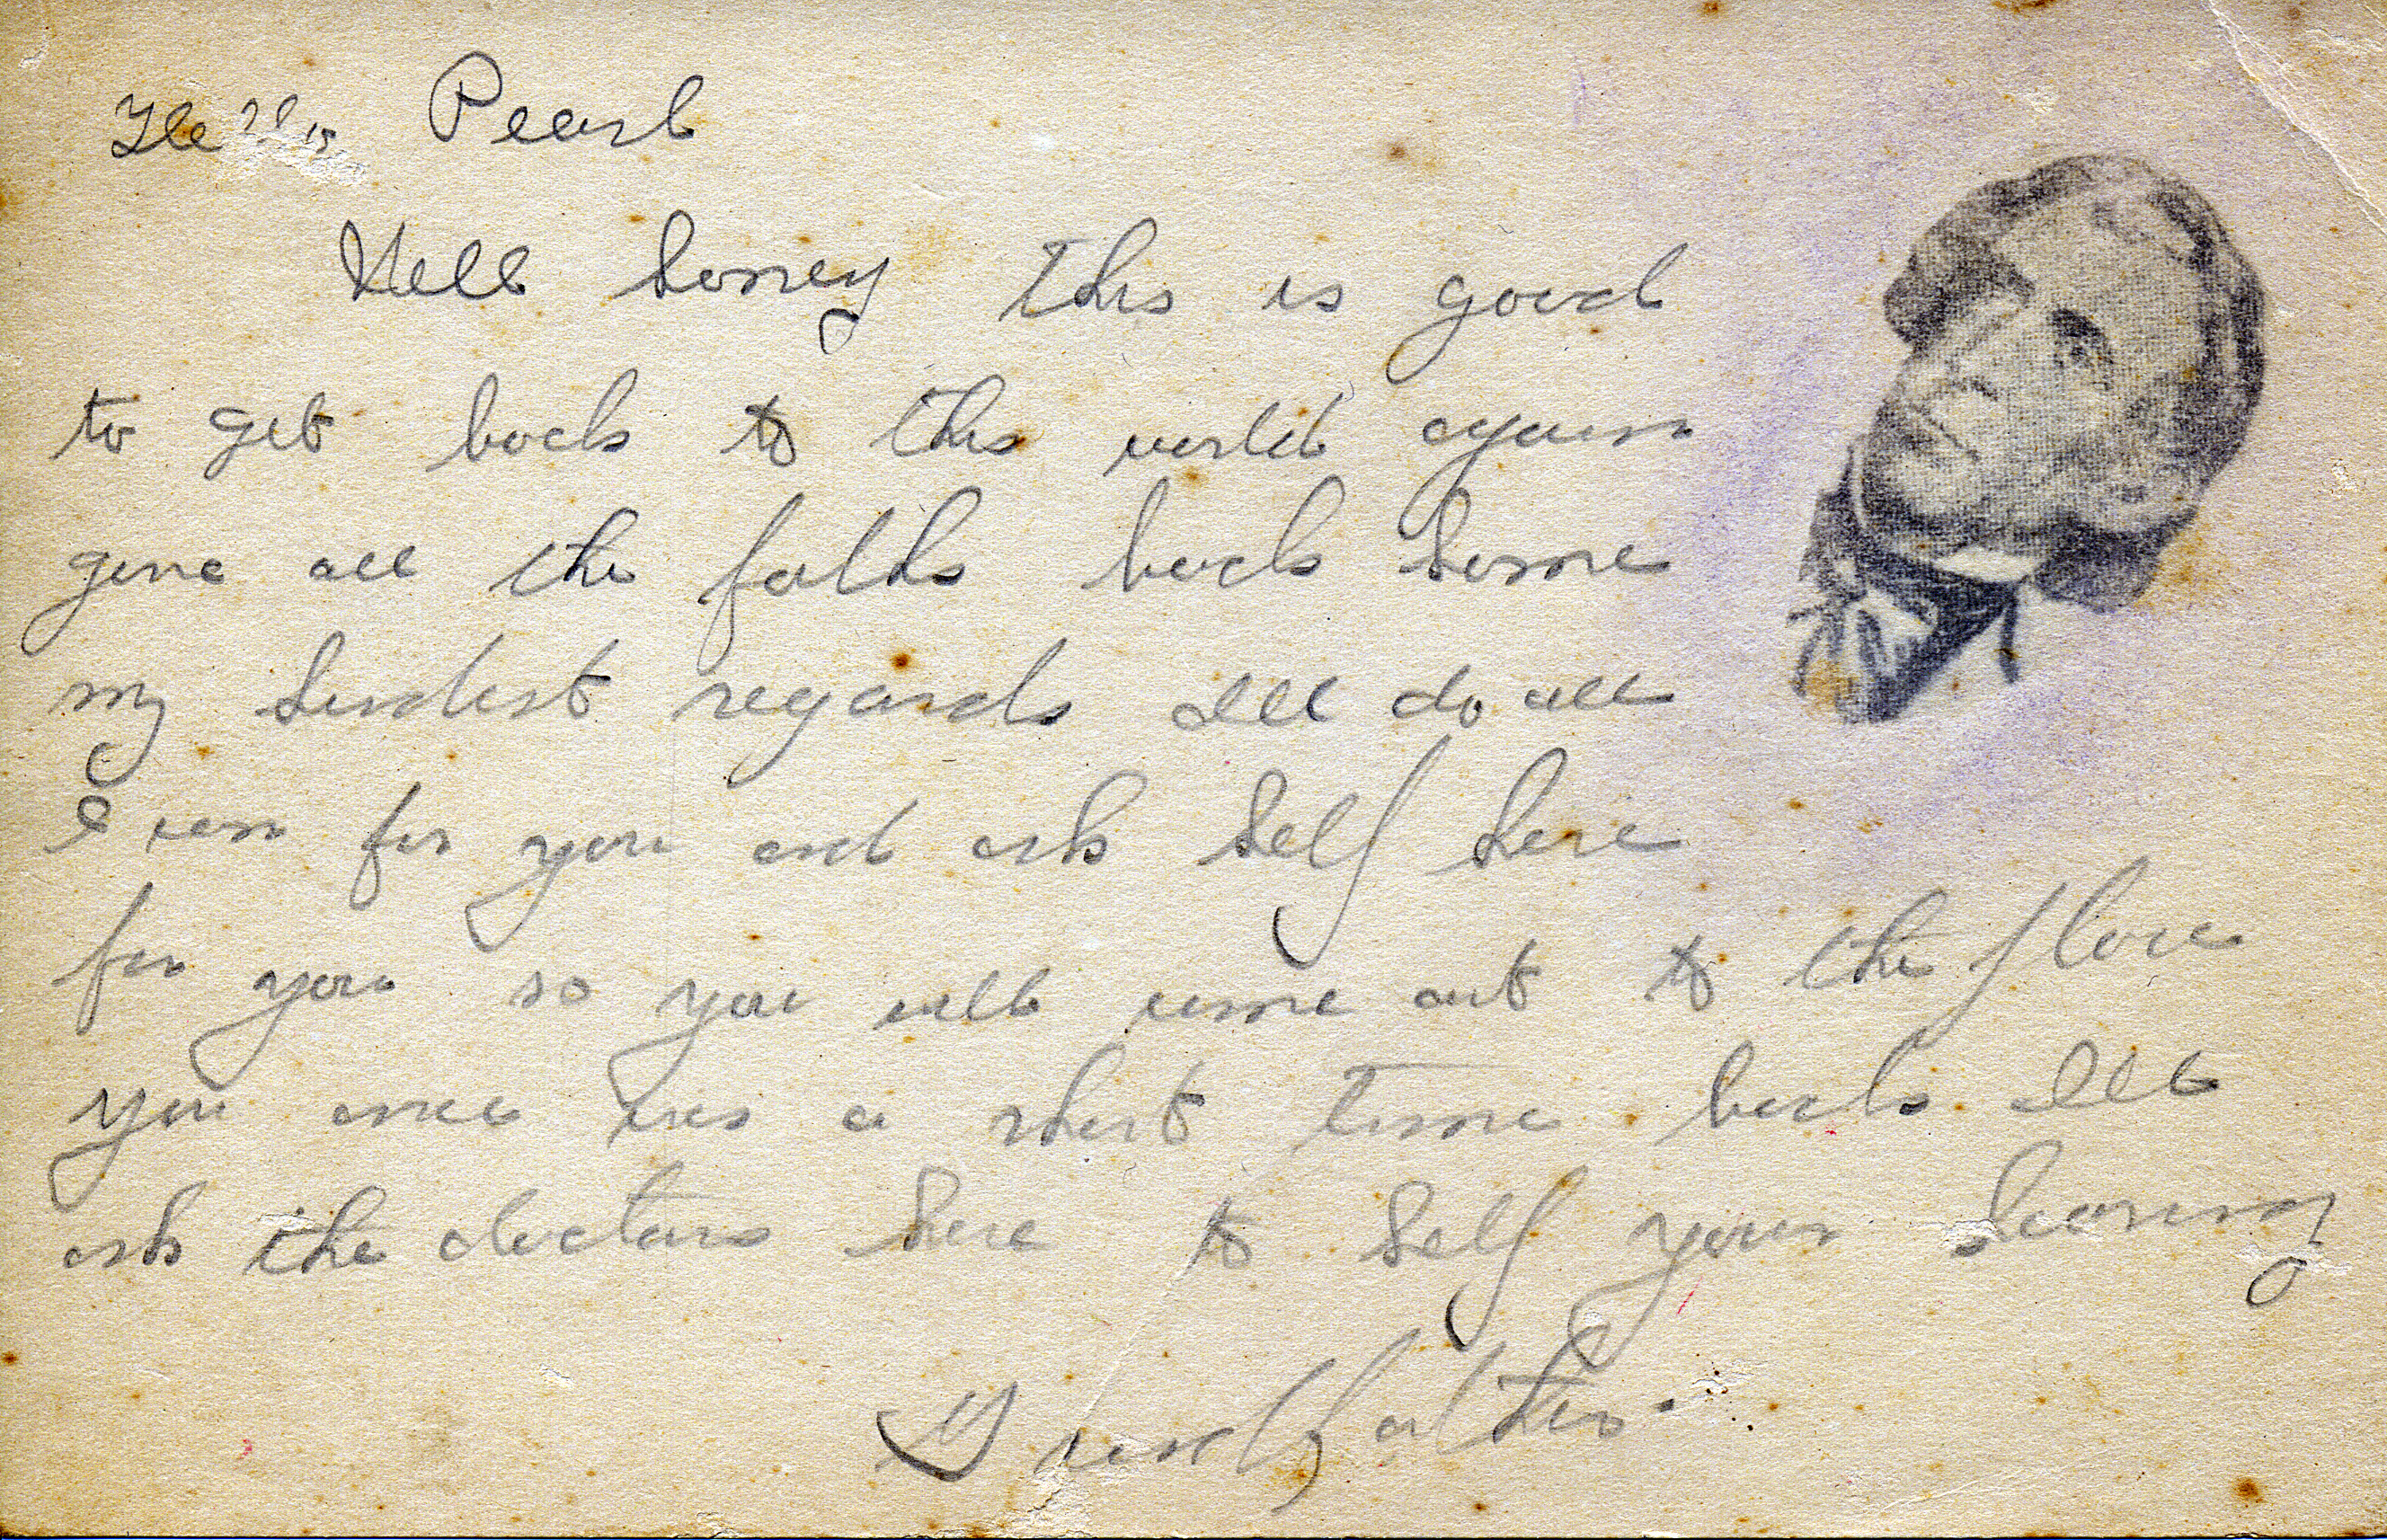 Hello Pearl
Well honey this is good
to get back to this world again
give all the folks back home
my kindest regards Ill do all
I can for you and ask help here
for you so you will come out to the place
you once was a short time back Ill
ask the doctors here to help your hearing
Grandfather.